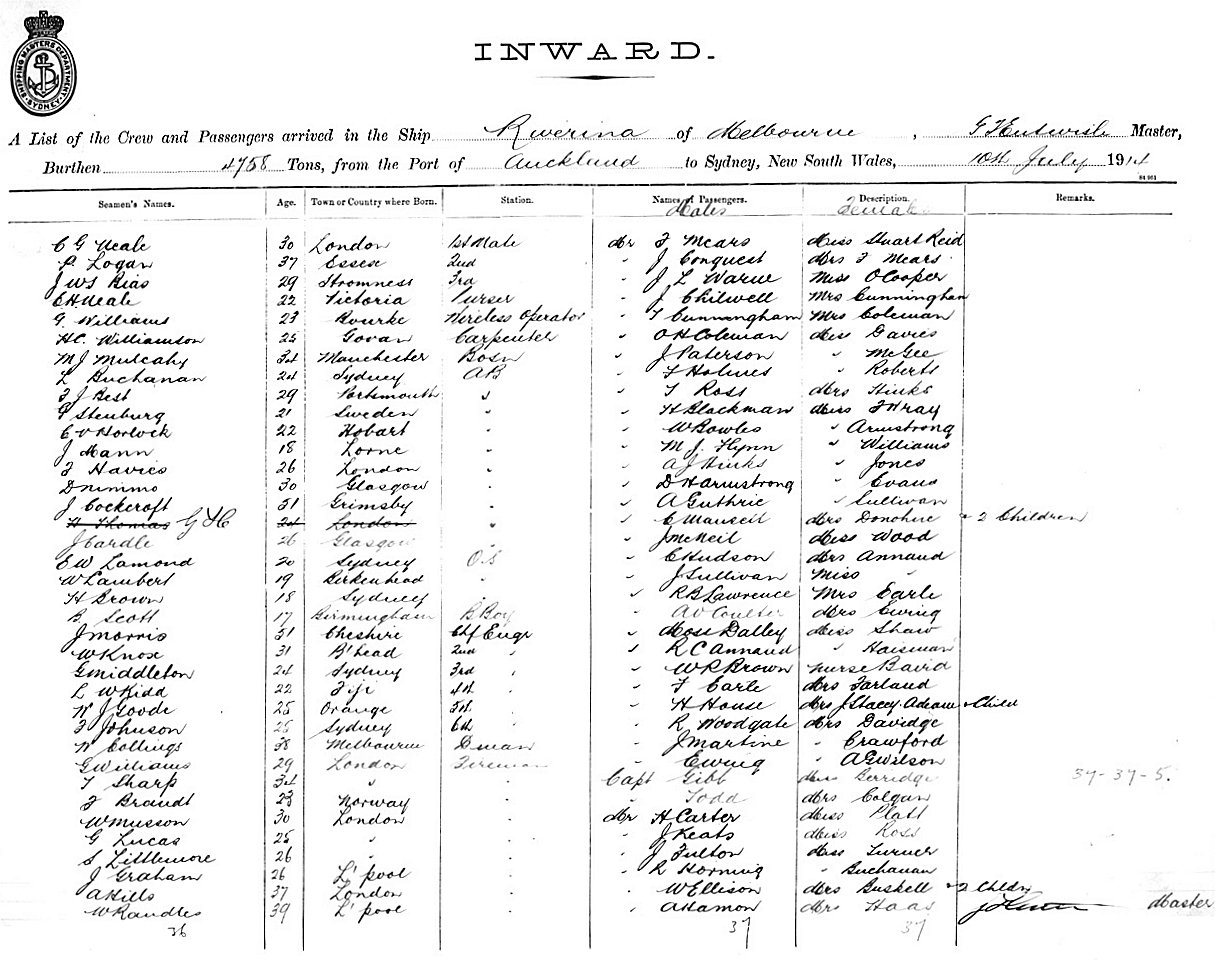 SHIPPING MASTERS DEPARTMENT SYDNEY
INWARD.
A List of the Crew and Passengers arrived in the Ship Riverina of Melbourne, Master,
Burthen 4758 Tons, from the Port of Auckland to Sydney, New South Wales, 10th July 1914
Seamen's Names. Age. Town or Country where Born. Station. Names of Passengers. Description. Remarks.
Males Females
C G Neale 30 London 1st Mate Mr F Mears Miss Stuart Reid
P Logan 37 Essex 2nd " J Conquest Mrs F Mears
J W S Rias 29 Stromness 3rd " J L Warne Miss O Cooper
C H Neale 22 Victoria Purser " J Chilwell Mrs Cunningham
G Williams 23 Bourke Wireless Operator " T Cunningham Mrs Coleman
H C Williamson 25 Govan Carpenter " O H Coleman Miss Davies
M J Mulcahy 34 Manchester Bosn " J Paterson " McGee
L Buchanan 24 Sydney AB " F Holmes " Roberts
F J Best 29 Portsmouth " " T Ross Mrs Hinks
G Stenburg 21 Sweden " " H Blackman Miss F Wray
C V Horlock 22 Hobart " " W Bowles " Armstrong
J Mann 18 Lorne " " M J Flynn " Williams
F Havies 26 London " " A J Hinks " Jones
D Nimmo 30 Glasgow " " D H Armstrong " Evans
J Cockcroft 51 Grimsby " " A Guthrie " Sullivan
H Thomas 24 London " " C Manseil Mrs Donohue + 2 Children
J Cardle 26 Glasgow " " J McNeil Miss Wood
C W Lamond 20 Sydney O.S " C Hudson Mrs Annand
W Lambert 19 Birkenhead " " J Sullivan Miss "
H Brown 18 Sydney " " R B Lawrence Mrs Earle
B Scott 17 Birmingham B Boy " A V Coulter Mrs Ewing
J Morris 51 Cheshire Chf Engr " Moss Dalley Miss Shaw
W Knox 31 B'head 2nd " " R C Annand " Haisman
G Middleton 24 Sydney 3rd " " W R Brown Nurse Bavid
L W Kidd 22 Fiji 4th " " F Earle Mrs Farland
W J Goode 25 Orange 5th " " H House Mrs J Stacey Adeane + Child
F Johnson 25 Sydney 6th " " R Woodgate Mrs Davidge
W Collings 38 Melbourne Dman " J Martine " Crawford
G Williams 29 London Fireman " Ewing " A G Wilson
T Sharp 34 " " Capt Gibb Miss Gerridge 37-37-5.
F Brandt 23 Norway " " Todd Mrs Colgan
W Musson 30 London " Mr H Carter Miss Platt
G Lucas 25 " " " J Keats Miss Ross
S Littlemore 26 " " " J Fulton Miss Turner
J Graham 26 L'pool " " R Horning " Buchanan
A Hills 37 London " " W Ellison Mrs Buskell + 2 Childn
W Randles 39 L'pool " " A Hamon Mrs Haas Master
36 37 37